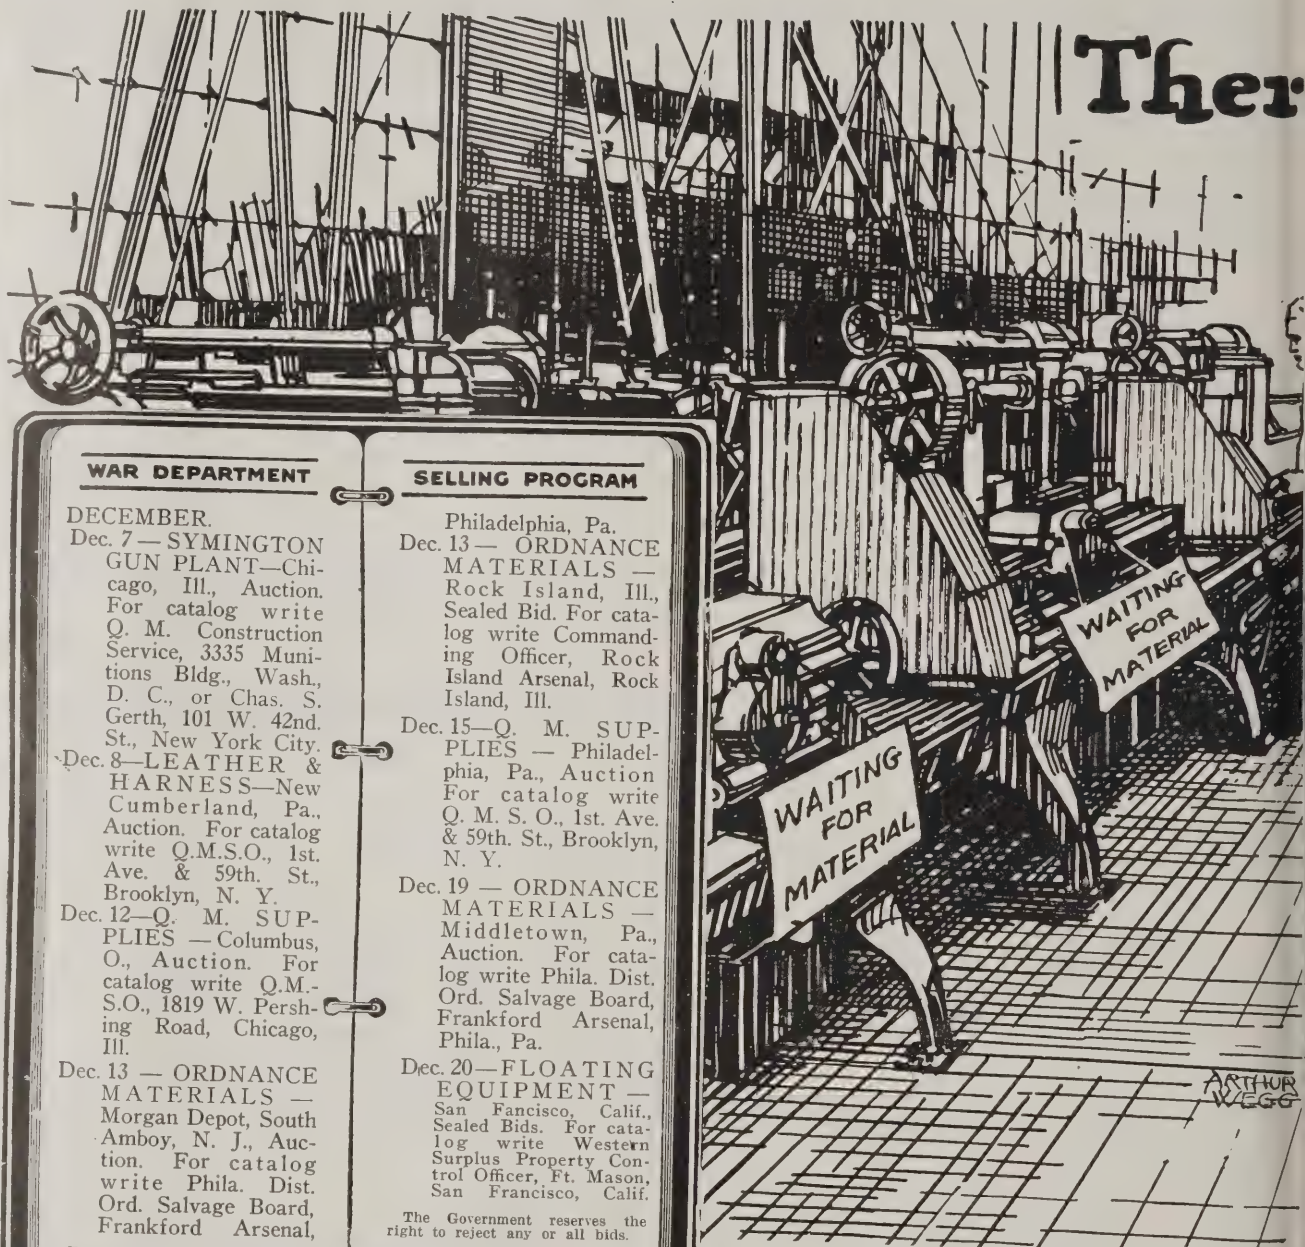 Ther
WAR DEPARTMENT
DECEMBER.
Dec. 7 — SYMINGTON
GUN PLANT—Chi-
cago, Ill., Auction.
For catalog write
Q. M. Construction
Service, 3335 Muni-
tions Bldg., Wash.,
D. C., or Chas. S.
Gerth, 101 W. 42nd.
St., New York City.
Dec. 8—LEATHER &
HARNESS—New
Cumberland, Pa.,
Auction. For catalog
write Q.M.S.O., 1st.
Ave. & 59th. St.,
Brooklyn, N. Y.
Dec. 12—Q. M. SUP-
PLIES — Columbus,
O., Auction. For
catalog write Q.M.-
S.O., 1819 W. Persh-
ing Road, Chicago,
Ill.
Dec. 13 — ORDNANCE
MATERIALS —
Morgan Depot, South
Amboy, N. J., Auc-
tion. For catalog
write Phila. Dist.
Ord. Salvage Board,
Frankford Arsenal,
SELLING PROGRAM
Philadelphia, Pa.
Dec. 13 — ORDNANCE
MATERIALS —
Rock Island, Ill.,
Sealed Bid. For cata-
log write Command-
ing Officer, Rock
Island Arsenal, Rock
Island, Ill.
Dec. 15—Q. M. SUP-
PLIES — Philadel-
phia, Pa., Auction
For catalog write
Q. M. S. O., 1st. Ave.
& 59th. St., Brooklyn,
N. Y.
Dec. 19 — ORDNANCE
MATERIALS —
Middletown, Pa.,
Auction. For cata-
log write Phila. Dist.
Ord. Salvage Board,
Frankford Arsenal,
Phila., Pa.
Dec. 20—FLOATING
EQUIPMENT —
San Fancisco, Calif.,
Sealed Bids. For cata-
log write Western
Surplus Property Con-
trol Officer, Ft. Mason,
San Francisco, Calif.
The Government reserves the
right to reject any or all bids.
WAITING
FOR
MATERIAL
WAITING
FOR
MATERIAL
ARTHUR
WEGG